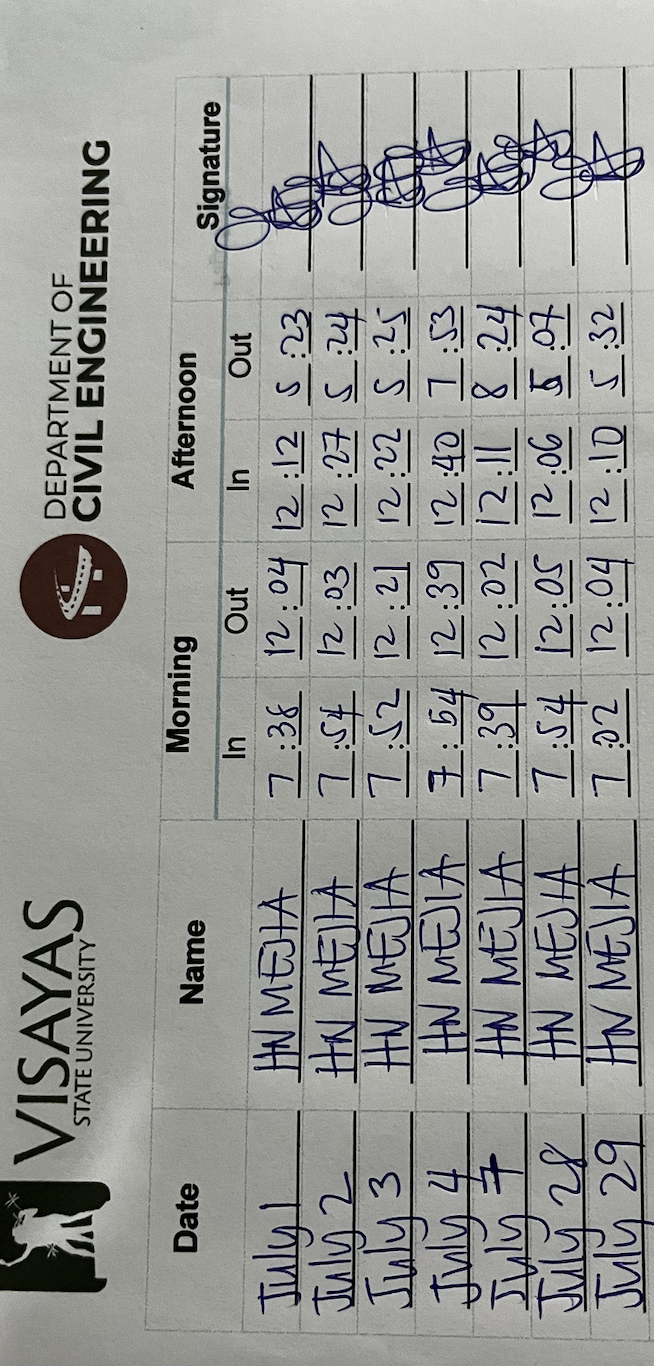 VISAYAS
STATE UNIVERSITY
DEPARTMENT OF
CIVIL ENGINEERING
Date Name Morning Afternoon Signature
In Out In Out
July 1 HN MEJIA 7:38 12:04 12:12 5:23
July 2 HN MEJIA 7:54 12:03 12:27 5:24
July 3 HN MEJIA 7:52 12:21 12:22 5:25
July 4 HN MEJIA 7:54 12:39 12:40 7:53
July 7 HN MEJIA 7:39 12:02 12:11 8:24
July 28 HN MEJIA 7:54 12:05 12:06 5:07
July 29 HN MEJIA 7:02 12:04 12:10 5:32